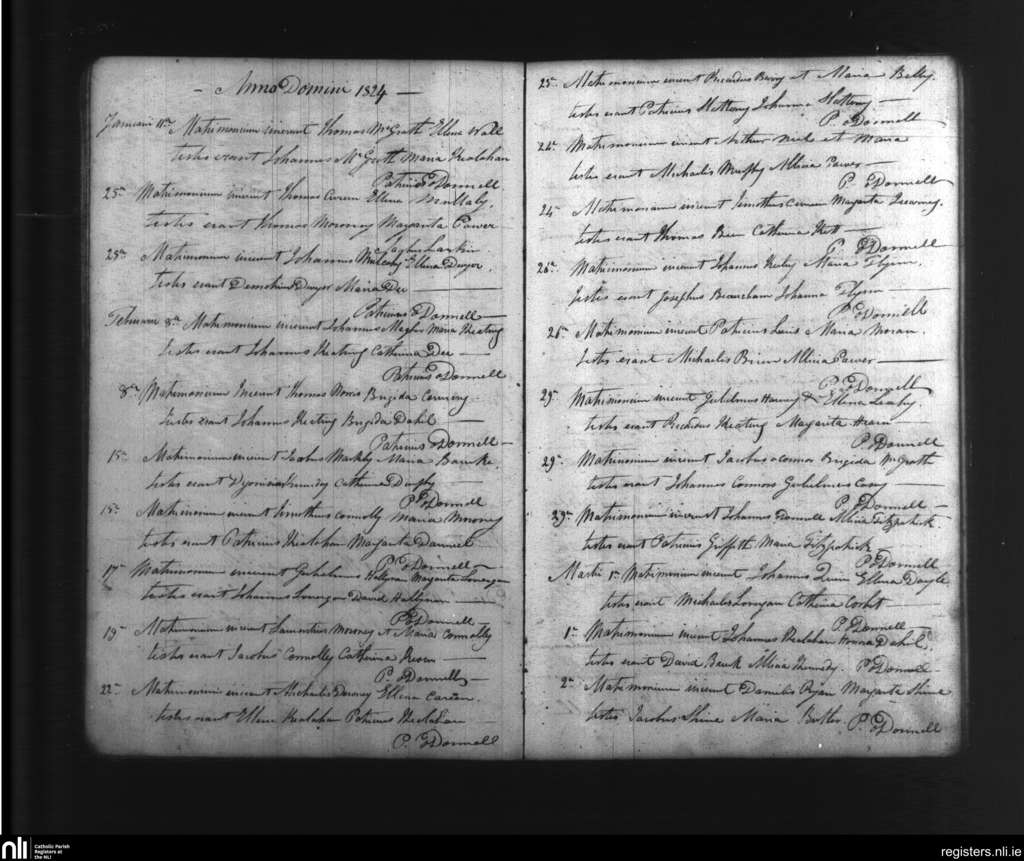 Anno Domini 1824
Januarii 11ma Matrimonium inierunt Thomas McGrath Ellena Wall
testes erant Johannes McGrath Maria Healahan
Patricius ODonnell
25ma Matrimonium inierunt Thomas Ellena Mullaly.
testes erant Thomas Moroney Margarita Power
Larkin
25ma Matrimonium inierunt Johannes Mulcahy Ellena Dwyer.
testes erant Dwyer Maria Dee
Patricius ODonnell
Februarii 8a Matrimonium inierunt Johannes Magher Maria Keating
testes erant Johannes Keating Catherina Dee
Patricius ODonnell
8a Matrimonium Inierunt Thomas Brigida
testes erant Johannes Keating Brigida Dahil
Patricius ODonnell
15a Matrimonium inierunt Jacobus Maria Bourke.
testes erant Dyonisius Kennedy Catherina
P. ODonnell
15a Matrimonium inierunt Timotheus Connolly Maria Mooney
testes erant Patricius Healahan Margarita
P. ODonnell
17a Matrimonium inierunt Gulielmus Hallynan Margarita Lonergan
testes erant Johannes Lonergan David Hallynan
P. ODonnell
19a Matrimonium inierunt Laurentius Mooney et Maria Connolly
testes erant Jacobus Connolly Catherina
P. ODonnell
22a Matrimonium inierunt Michaelis Ellena
testes erant Ellena Healahan Patricius Healahan
P. ODonnell
25a Matrimonium inierunt Ricardus Berry et Maria
testes erant Patricius Slattery Johanna Slattery
P ODonnell
24a Matrimonium inierunt Arthur et Maria
testes erant Michaelis Murphy Allicia Power
P. ODonnell
24a Matrimonium inierunt Timotheus Margarita
testes erant Thomas Catherina
P. ODonnell
26a Matrimonium inierunt Johannes Maria Flynn.
testes erant Josephus Beaucham Johanna Flynn
P. ODonnell
26a Matrimonium inierunt Patricius Maria Moran.
testes erant Michaelis Brien Allicia Power
P. ODonnell
29a Matrimonium inierunt Gulielmus & Ellena Leahy.
testes erant Ricardus Keating Margarita
P. ODonnell
29a Matrimonium inierunt Jacobus oConnor Brigida McGrath
testes erant Johannes Connors Gulielmus Casey
P. ODonnell
29a Matrimonium inierunt Johannes Donnell Allicia Fitzpatrick.
testes erant Patricius Griffith Maria Fitzpatrick
P. ODonnell
Martii 1a Matrimonium inierunt Johannes Quin Ellena Doyle
testes erant Michaelis Lonergan Catherina Corbet
P. ODonnell
1a Matrimonium inierunt Johannes Healahan Honora Dahil.
testes erant David Bourk Allicia Kennedy. P. ODonnell
2a Matrimonium inierunt Daniel Ryan Margarita Shine
testes Jacobus Shine Maria Butler. P. ODonnell
nli
Catholic Parish
Registers at
the NLI
registers.nli.ie